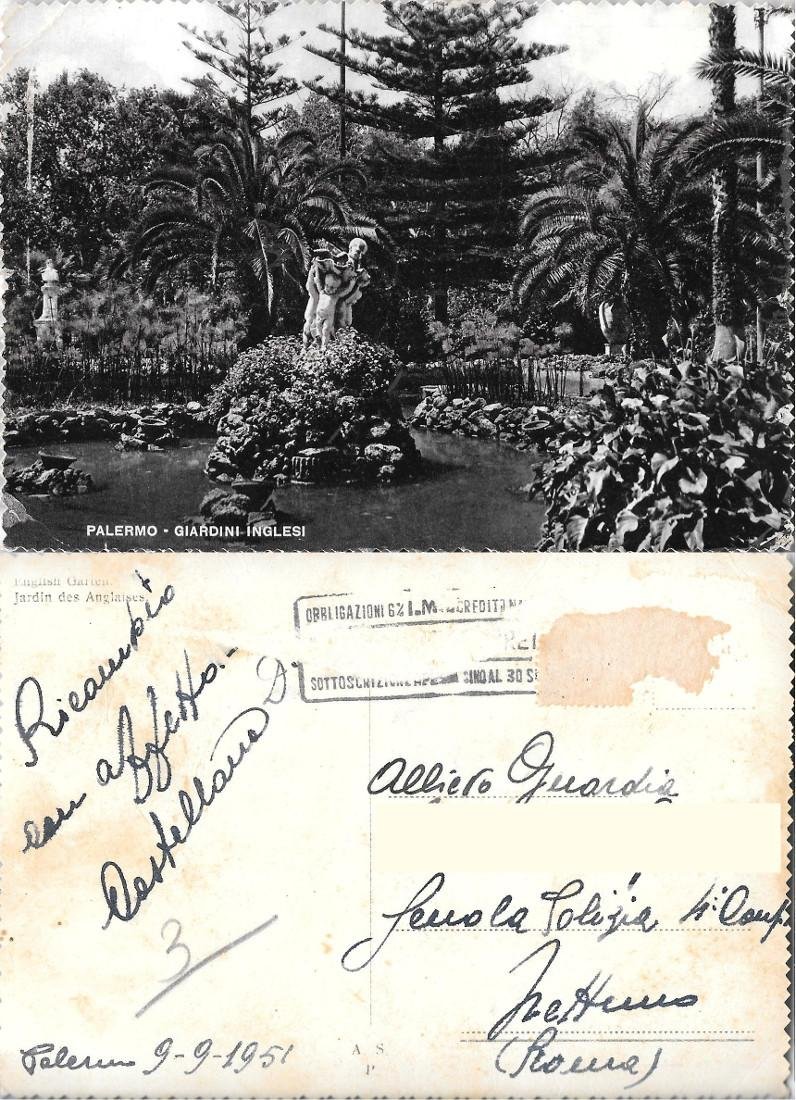 PALERMO - GIARDINI INGLESI
English Garten.
Jardin des Anglaises
OBBLIGAZIONI 6% I.M.I. CREDITO NA
SOTTOSCRIZIONE SINO AL 30 S
Ricambio
con affetto.-
Castellana D
3
Palermo 9-9-1951
Allievo Guardia
Scuola Polizia 4ª Comp.
Nettuno
(Roma)
A. S.
P.